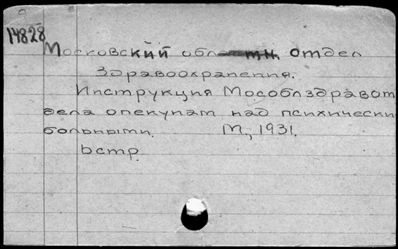 14828
Московский областн. отдел
здравоохранения.
Инструкция Мособлздравот
дела опекунам над психически
больными. М, 1931.
6стр